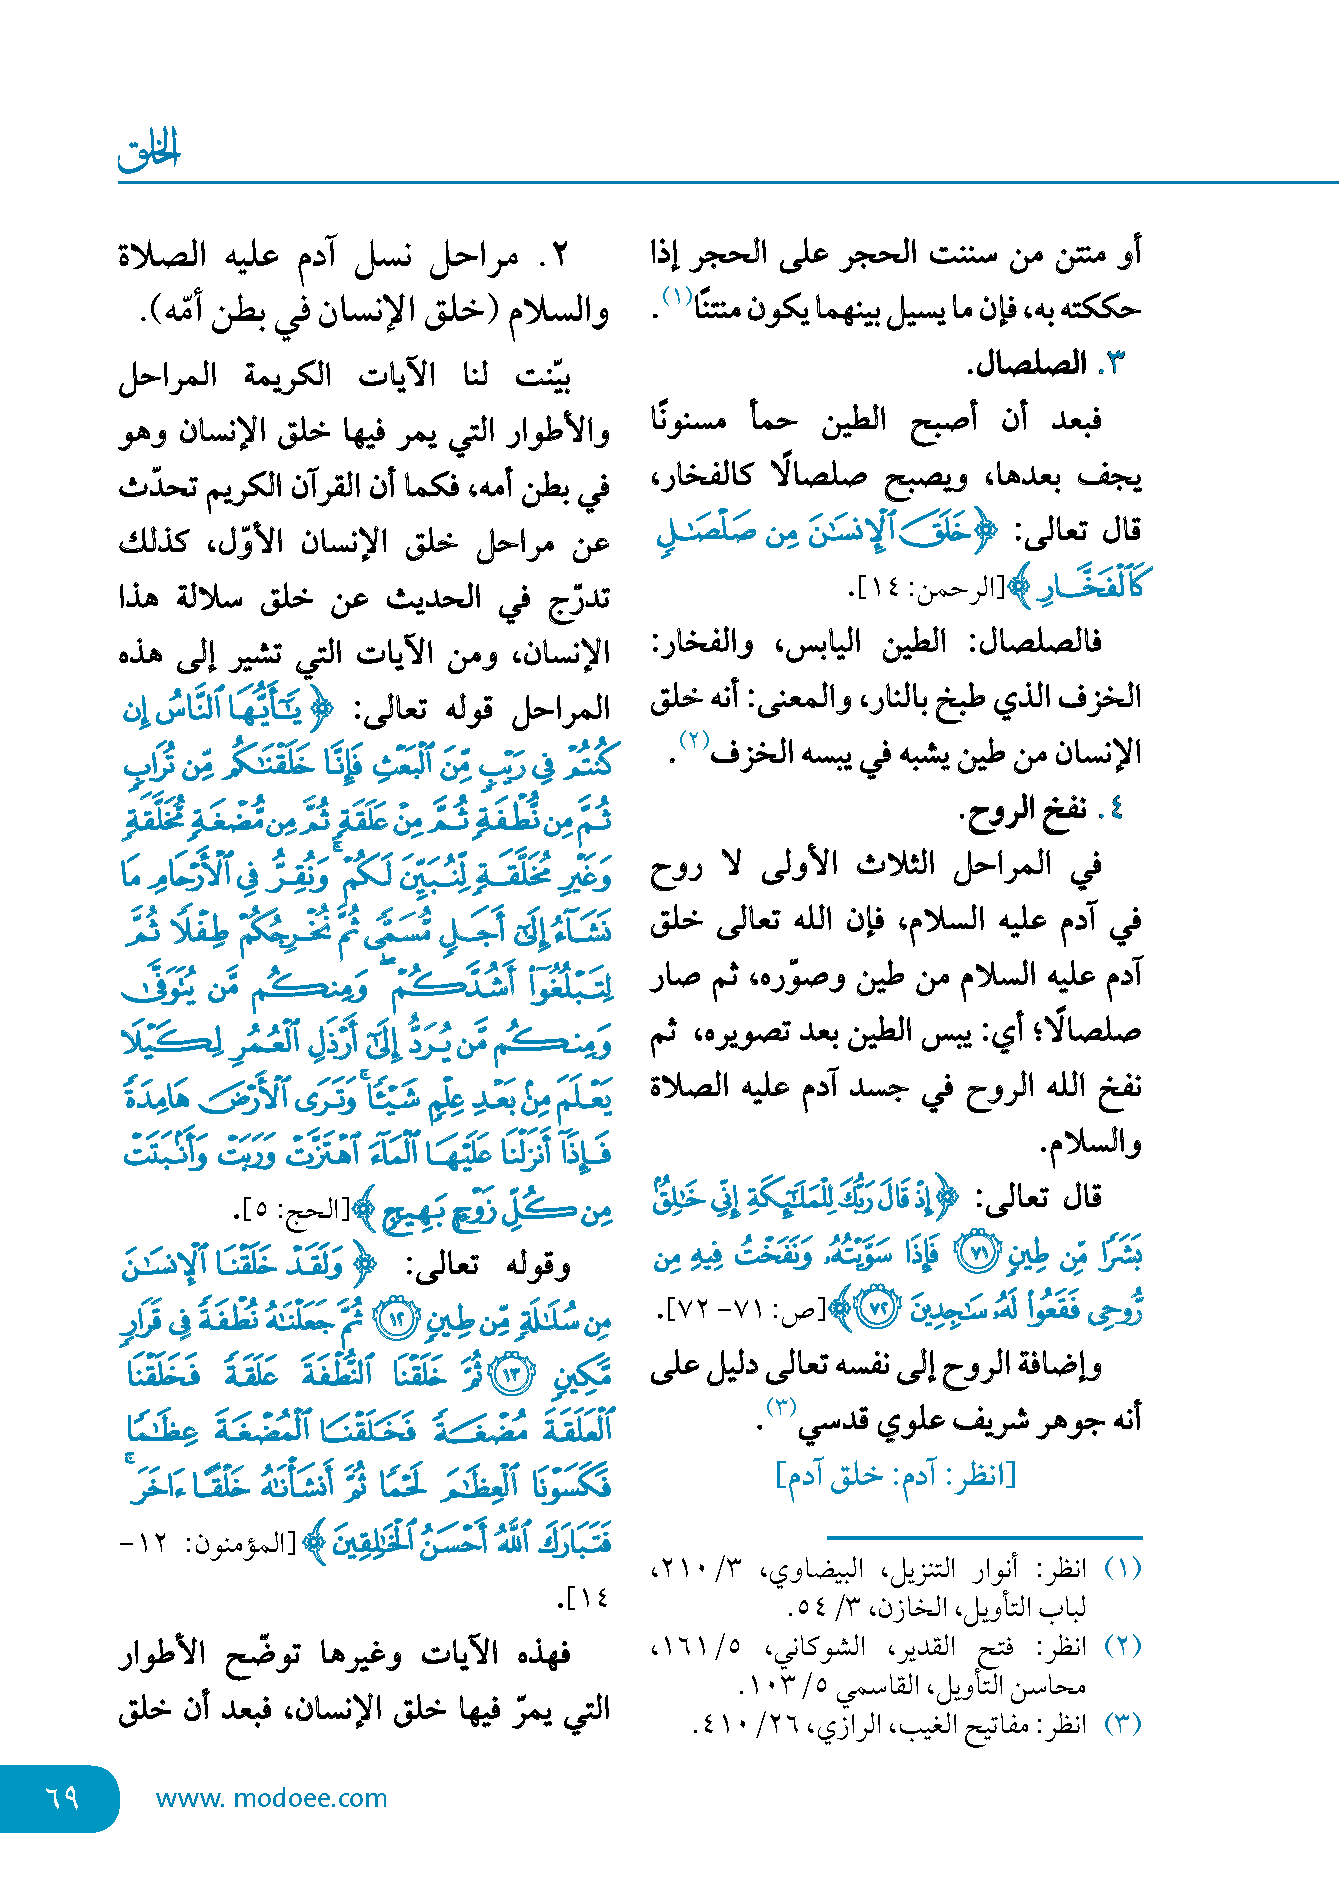 الخلق
أو منتن من سننت الحجر على الحجر إذا
حككته به، فإن ما يسيل بينهما يكون منتنًا(١).
٣. الصلصال.
فبعد أن أصبح الطين حمأ مسنونًا
يجف بعدها، ويصبح صلصالًا كالفخار،
قال تعالى: ﴿خَلَقَ ٱلْإِنسَـٰنَ مِن صَلْصَـٰلٍ
كَٱلْفَخَّارِ﴾[الرحمن: ١٤].
فالصلصال: الطين اليابس، والفخار:
الخزف الذي طبخ بالنار، والمعنى: أنه خلق
الإنسان من طين يشبه في يبسه الخزف(٢).
٤. نفخ الروح.
في المراحل الثلاث الأولى لا روح
في آدم عليه السلام، فإن الله تعالى خلق
آدم عليه السلام من طين وصوّره، ثم صار
صلصالًا؛ أي: يبس الطين بعد تصويره، ثم
نفخ الله الروح في جسد آدم عليه الصلاة
والسلام.
قال تعالى: ﴿إِذْ قَالَ رَبُّكَ لِلْمَلَـٰٓئِكَةِ إِنِّى خَـٰلِقٌۢ
بَشَرًا مِّن طِينٍ ﴿٧١﴾ فَإِذَا سَوَّيْتُهُۥ وَنَفَخْتُ فِيهِ مِن
رُّوحِى فَقَعُوا۟ لَهُۥ سَـٰجِدِينَ ﴿٧٢﴾﴾[ص: ٧١- ٧٢].
وإضافة الروح إلى نفسه تعالى دليل على
أنه جوهر شريف علوي قدسي(٣).
[انظر: آدم: خلق آدم]
(١) انظر: أنوار التنزيل، البيضاوي، ٣/ ٢١٠،
لباب التأويل، الخازن، ٣/ ٥٤.
(٢) انظر: فتح القدير، الشوكاني، ٥/ ١٦١،
محاسن التأويل، القاسمي ٥/ ١٠٣.
(٣) انظر: مفاتيح الغيب، الرازي، ٢٦/ ٤١٠.
٢. مراحل نسل آدم عليه الصلاة
والسلام (خلق الإنسان في بطن أمّه).
بيّنت لنا الآيات الكريمة المراحل
والأطوار التي يمر فيها خلق الإنسان وهو
في بطن أمه، فكما أن القرآن الكريم تحدّث
عن مراحل خلق الإنسان الأوّل، كذلك
تدرّج في الحديث عن خلق سلالة هذا
الإنسان، ومن الآيات التي تشير إلى هذه
المراحل قوله تعالى: ﴿يَـٰٓأَيُّهَا ٱلنَّاسُ إِن
كُنتُمْ فِى رَيْبٍ مِّنَ ٱلْبَعْثِ فَإِنَّا خَلَقْنَـٰكُم مِّن تُرَابٍ
ثُمَّ مِن نُّطْفَةٍ ثُمَّ مِنْ عَلَقَةٍ ثُمَّ مِن مُّضْغَةٍ مُّخَلَّقَةٍ
وَغَيْرِ مُخَلَّقَةٍ لِّنُبَيِّنَ لَكُمْ ۚ وَنُقِرُّ فِى ٱلْأَرْحَامِ مَا
نَشَآءُ إِلَىٰٓ أَجَلٍ مُّسَمًّى ثُمَّ نُخْرِجُكُمْ طِفْلًا ثُمَّ
لِتَبْلُغُوٓا۟ أَشُدَّكُمْ ۖ وَمِنكُم مَّن يُتَوَفَّىٰ
وَمِنكُم مَّن يُرَدُّ إِلَىٰٓ أَرْذَلِ ٱلْعُمُرِ لِكَيْلَا
يَعْلَمَ مِنۢ بَعْدِ عِلْمٍ شَيْـًٔا ۚ وَتَرَى ٱلْأَرْضَ هَامِدَةً
فَإِذَآ أَنزَلْنَا عَلَيْهَا ٱلْمَآءَ ٱهْتَزَّتْ وَرَبَتْ وَأَنۢبَتَتْ
مِن كُلِّ زَوْجٍۭ بَهِيجٍ﴾[الحج: ٥].
وقوله تعالى: ﴿وَلَقَدْ خَلَقْنَا ٱلْإِنسَـٰنَ
مِن سُلَـٰلَةٍ مِّن طِينٍ ﴿١٢﴾ ثُمَّ جَعَلْنَـٰهُ نُطْفَةً فِى قَرَارٍ
مَّكِينٍ ﴿١٣﴾ ثُمَّ خَلَقْنَا ٱلنُّطْفَةَ عَلَقَةً فَخَلَقْنَا
ٱلْعَلَقَةَ مُضْغَةً فَخَلَقْنَا ٱلْمُضْغَةَ عِظَـٰمًا
فَكَسَوْنَا ٱلْعِظَـٰمَ لَحْمًا ثُمَّ أَنشَأْنَـٰهُ خَلْقًا ءَاخَرَ ۚ
فَتَبَارَكَ ٱللَّهُ أَحْسَنُ ٱلْخَـٰلِقِينَ﴾[المؤمنون: ١٢-
١٤].
فهذه الآيات وغيرها توضّح الأطوار
التي يمرّ فيها خلق الإنسان، فبعد أن خلق
www. modoee.com
٦٩